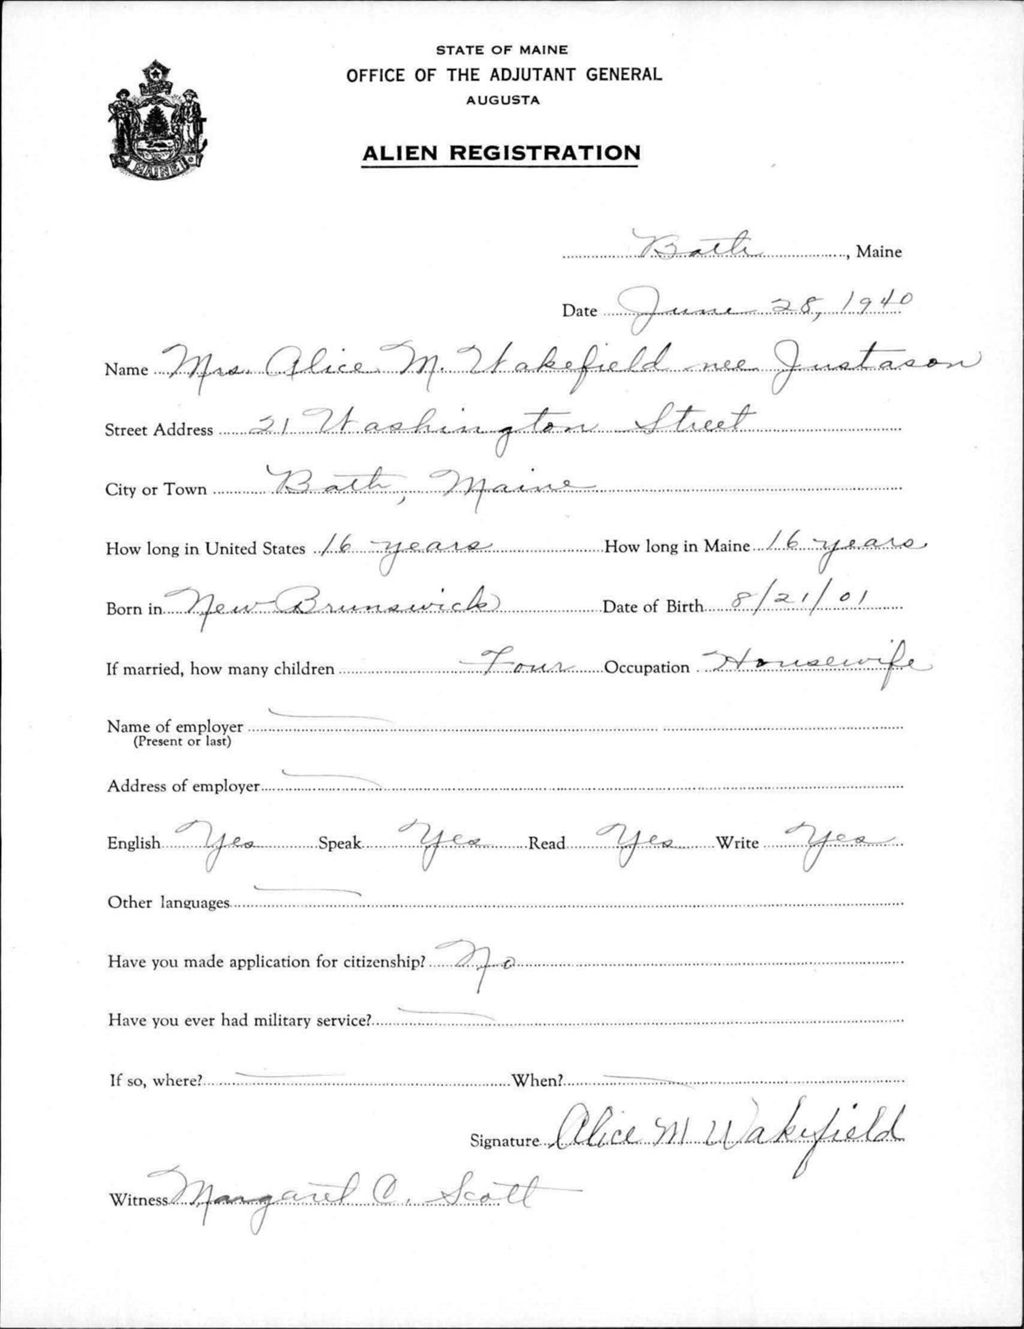 STATE OF MAINE
OFFICE OF THE ADJUTANT GENERAL
AUGUSTA
ALIEN REGISTRATION
MAINE
Bath, Maine
Date June 28, 1940
Name Mrs. Alice M. Wakefield nee Justason
Street Address 21 Washington Street
City or Town Bath, Maine
How long in United States 16 years How long in Maine 16 years
Born in New Brunswick Date of Birth 8/21/01
If married, how many children Four Occupation Housewife
Name of employer
(Present or last)
Address of employer
English Yes Speak Yes Read Yes Write Yes
Other languages
Have you made application for citizenship? No
Have you ever had military service?
If so, where? When?
Signature Alice M Wakefield
Witness Margaret C. Scott